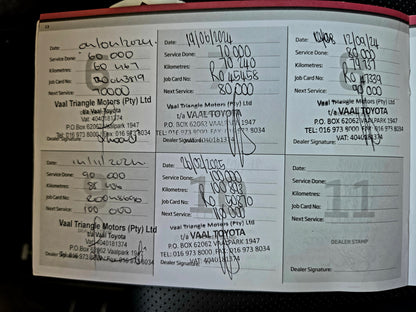 Date: 02/02/2024
Service Done: 60 000
Kilometres: 60 467
Job Card No:
Next Service: 70000
Vaal Triangle Motors (Pty) Ltd
t/a Vaal Toyota
VAT: 4040181374
P.O. Box 62062 Vaalpark 1947
Tel: 016 973 8000 Fax: 016 973 8034
Dealer Signature:
Date: 19/06/2024
Service Done: 70 000
Kilometres: 70 240
Job Card No: Ro 45458
Next Service: 80 000
Vaal Triangle Motors (Pty) Ltd
t/a VAAL TOYOTA
P.O. BOX 62062 VAALPARK 1947
TEL: 016 973 8000 FAX: 016 973 8034
VAT: 4040181374
Dealer Signature:
Date: 12/09/24
Service Done: 80 000
Kilometres:
Job Card No: Ro 47339
Next Service: 90 000
Vaal Triangle Motors (Pty) Ltd
t/a VAAL TOYOTA
P.O. BOX 62062 VAALPARK 1947
TEL: 016 973 8000 FAX: 016 973 8034
VAT: 4040181374
Dealer Signature:
Date:
Service Done: 90 000
Kilometres:
Job Card No:
Next Service: 100 000
Vaal Triangle Motors (Pty) Ltd
t/a Vaal Toyota
VAT: 4040181374
P.O. Box 62062 Vaalpark 1947
Tel: 016 973 8000 Fax: 016 973 8034
Dealer
Date:
Service Done: 100 000
Kilometres:
Job Card No:
Next Service: 110 000
10
Vaal Triangle Motors (Pty) Ltd
t/a VAAL TOYOTA
P.O. BOX 62062 VAALPARK 1947
TEL: 016 973 8000 FAX: 016 973 8034
VAT: 4040181374
Dealer Signature:
Date:
Service Done:
Kilometres:
Job Card No:
Next Service:
11
DEALER STAMP
Dealer Signature: